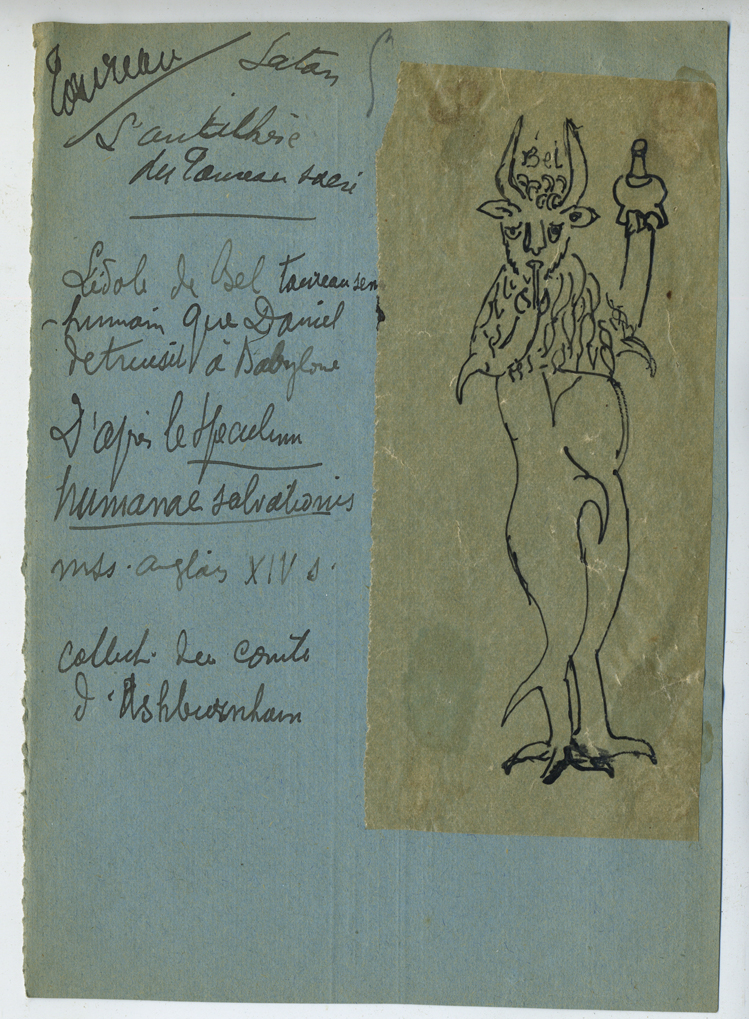 Taureau
Satan
L'antithèse
du Taureau sacré
L'idole de Bel taureau sem
-humain que Daniel
detruisit à Babylone
D'après le Speculum
humanae salvationis
mss. anglais XIV s.
collect. des comte
d'Ashburnham
Bel